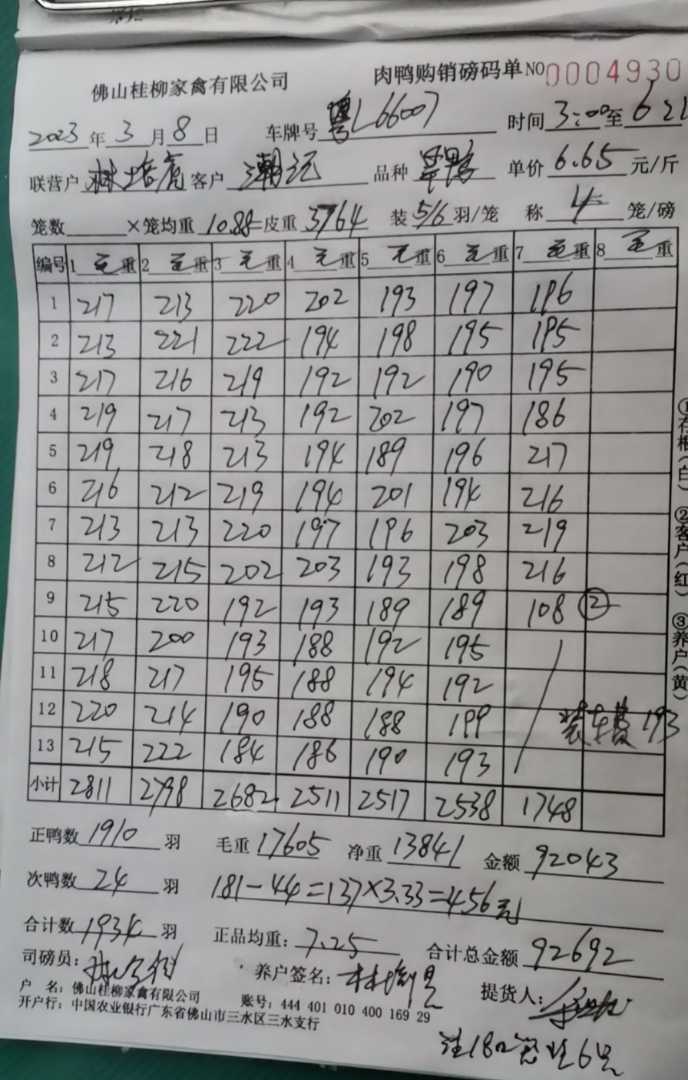 佛山桂柳家禽有限公司 肉鸭购销磅码单 NO 0004930
2023 年 3 月 8 日 车牌号 粤L66007 时间 3:00 至 6 21
联营户 客户 品种 单价 6.65 元/斤
笼数 ×笼均重 10.88 =皮重 3764 装 5/6 羽/笼 称 4 笼/磅
编号 1 毛重 2 毛重 3 毛重 4 毛重 5 毛重 6 毛重 7 毛重 8 毛重
1 217 213 220 202 193 197 196
2 213 221 222 194 198 195 195
3 217 216 219 192 192 190 195
4 219 217 213 192 202 197 186
5 219 218 213 194 189 196 217
6 216 212 219 194 201 194 216
7 213 213 220 197 196 203 219
8 212 215 202 203 193 198 216
9 215 220 192 193 189 189 108 ②
10 217 200 193 188 192 195
11 218 217 195 188 194 192
12 220 214 190 188 188 199 装车费 193
13 215 222 184 186 190 193
小计 2811 2798 2682 2511 2517 2538 1748
①存根(白) ②客户(红) ③养户(黄)
正鸭数 1910 羽 毛重 17605 净重 13841 金额 92043
次鸭数 24 羽 181-44=137×3.33=456元
合计数 1934 羽 正品均重: 7.25 合计总金额 92692
司磅员: 养户签名: 提货人:
户 名: 佛山桂柳家禽有限公司 账号: 444 401 010 400 169 29
开户行: 中国农业银行广东省佛山市三水区三水支行